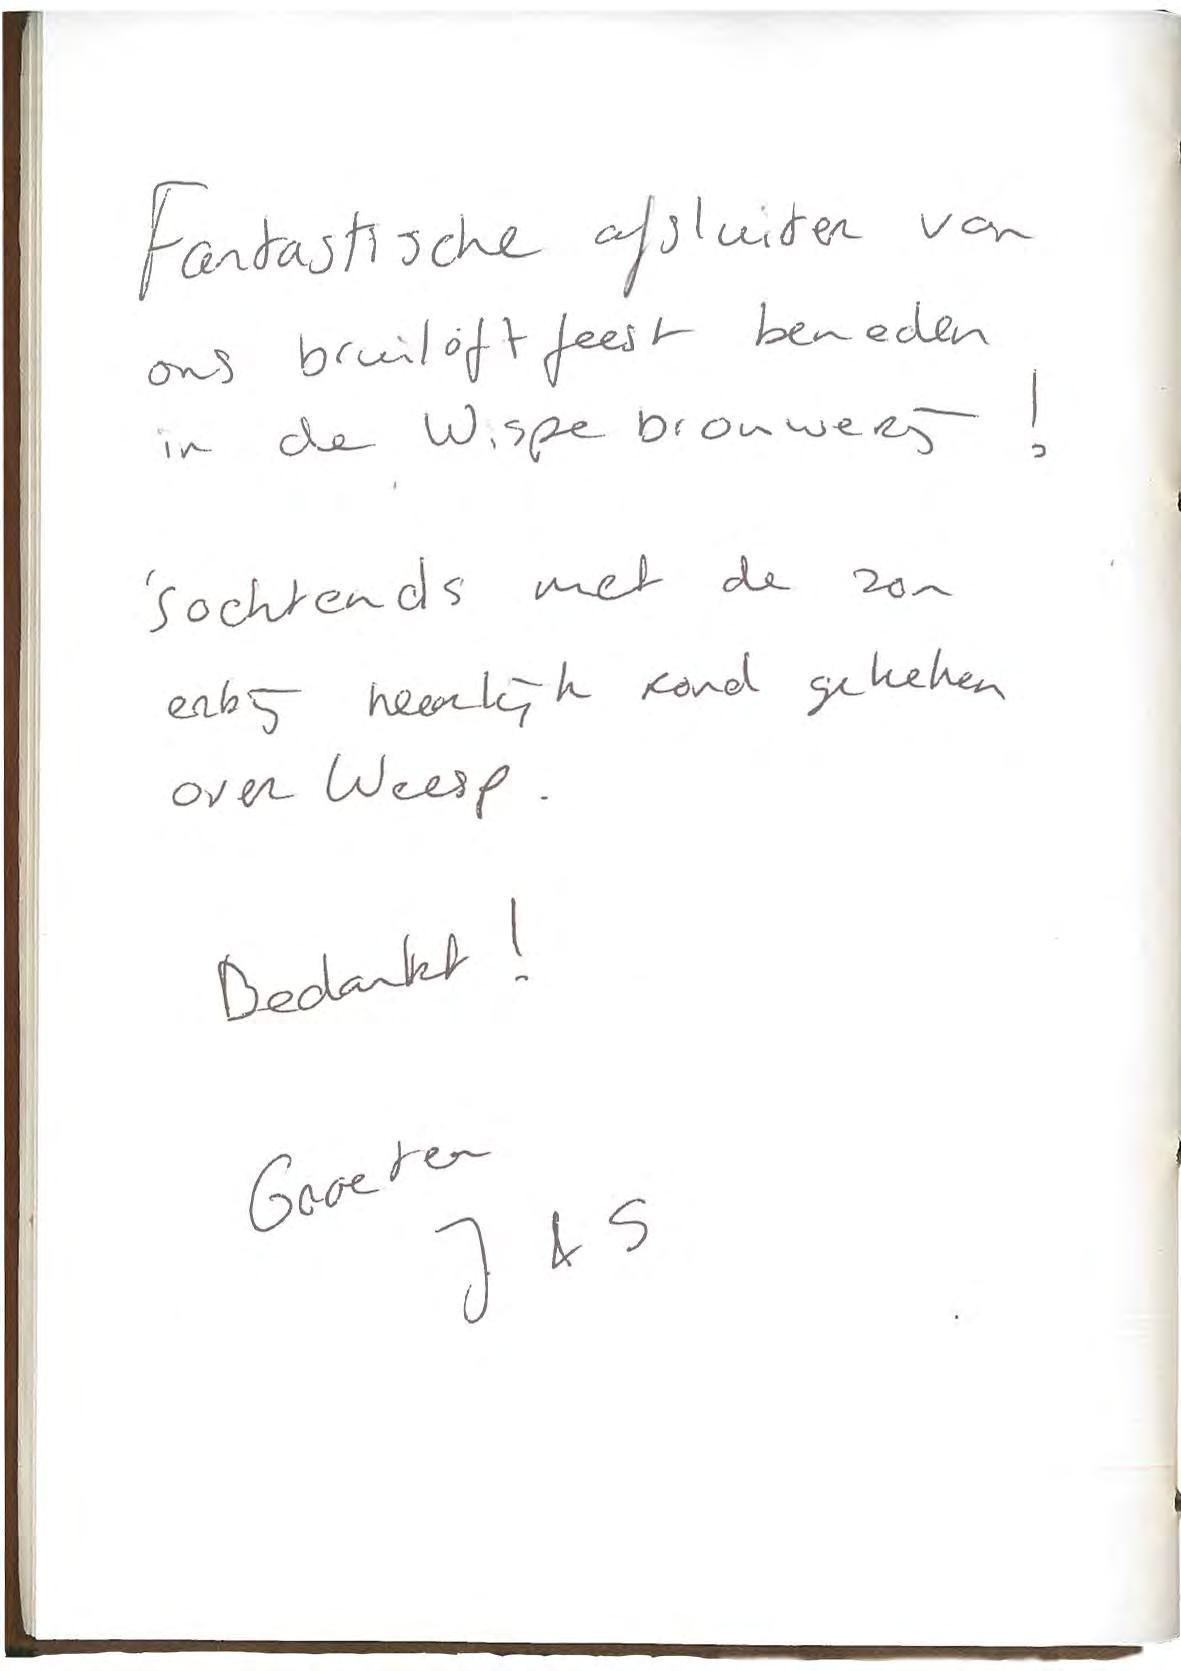 Fantastische afsluiter van
ons bruiloftfeest beneden
in de Wispe brouwerij !
'Sochtends met de zon
erbij heerlijk rond gekeken
over Weesp .
Bedankt !
Groeten
J & S